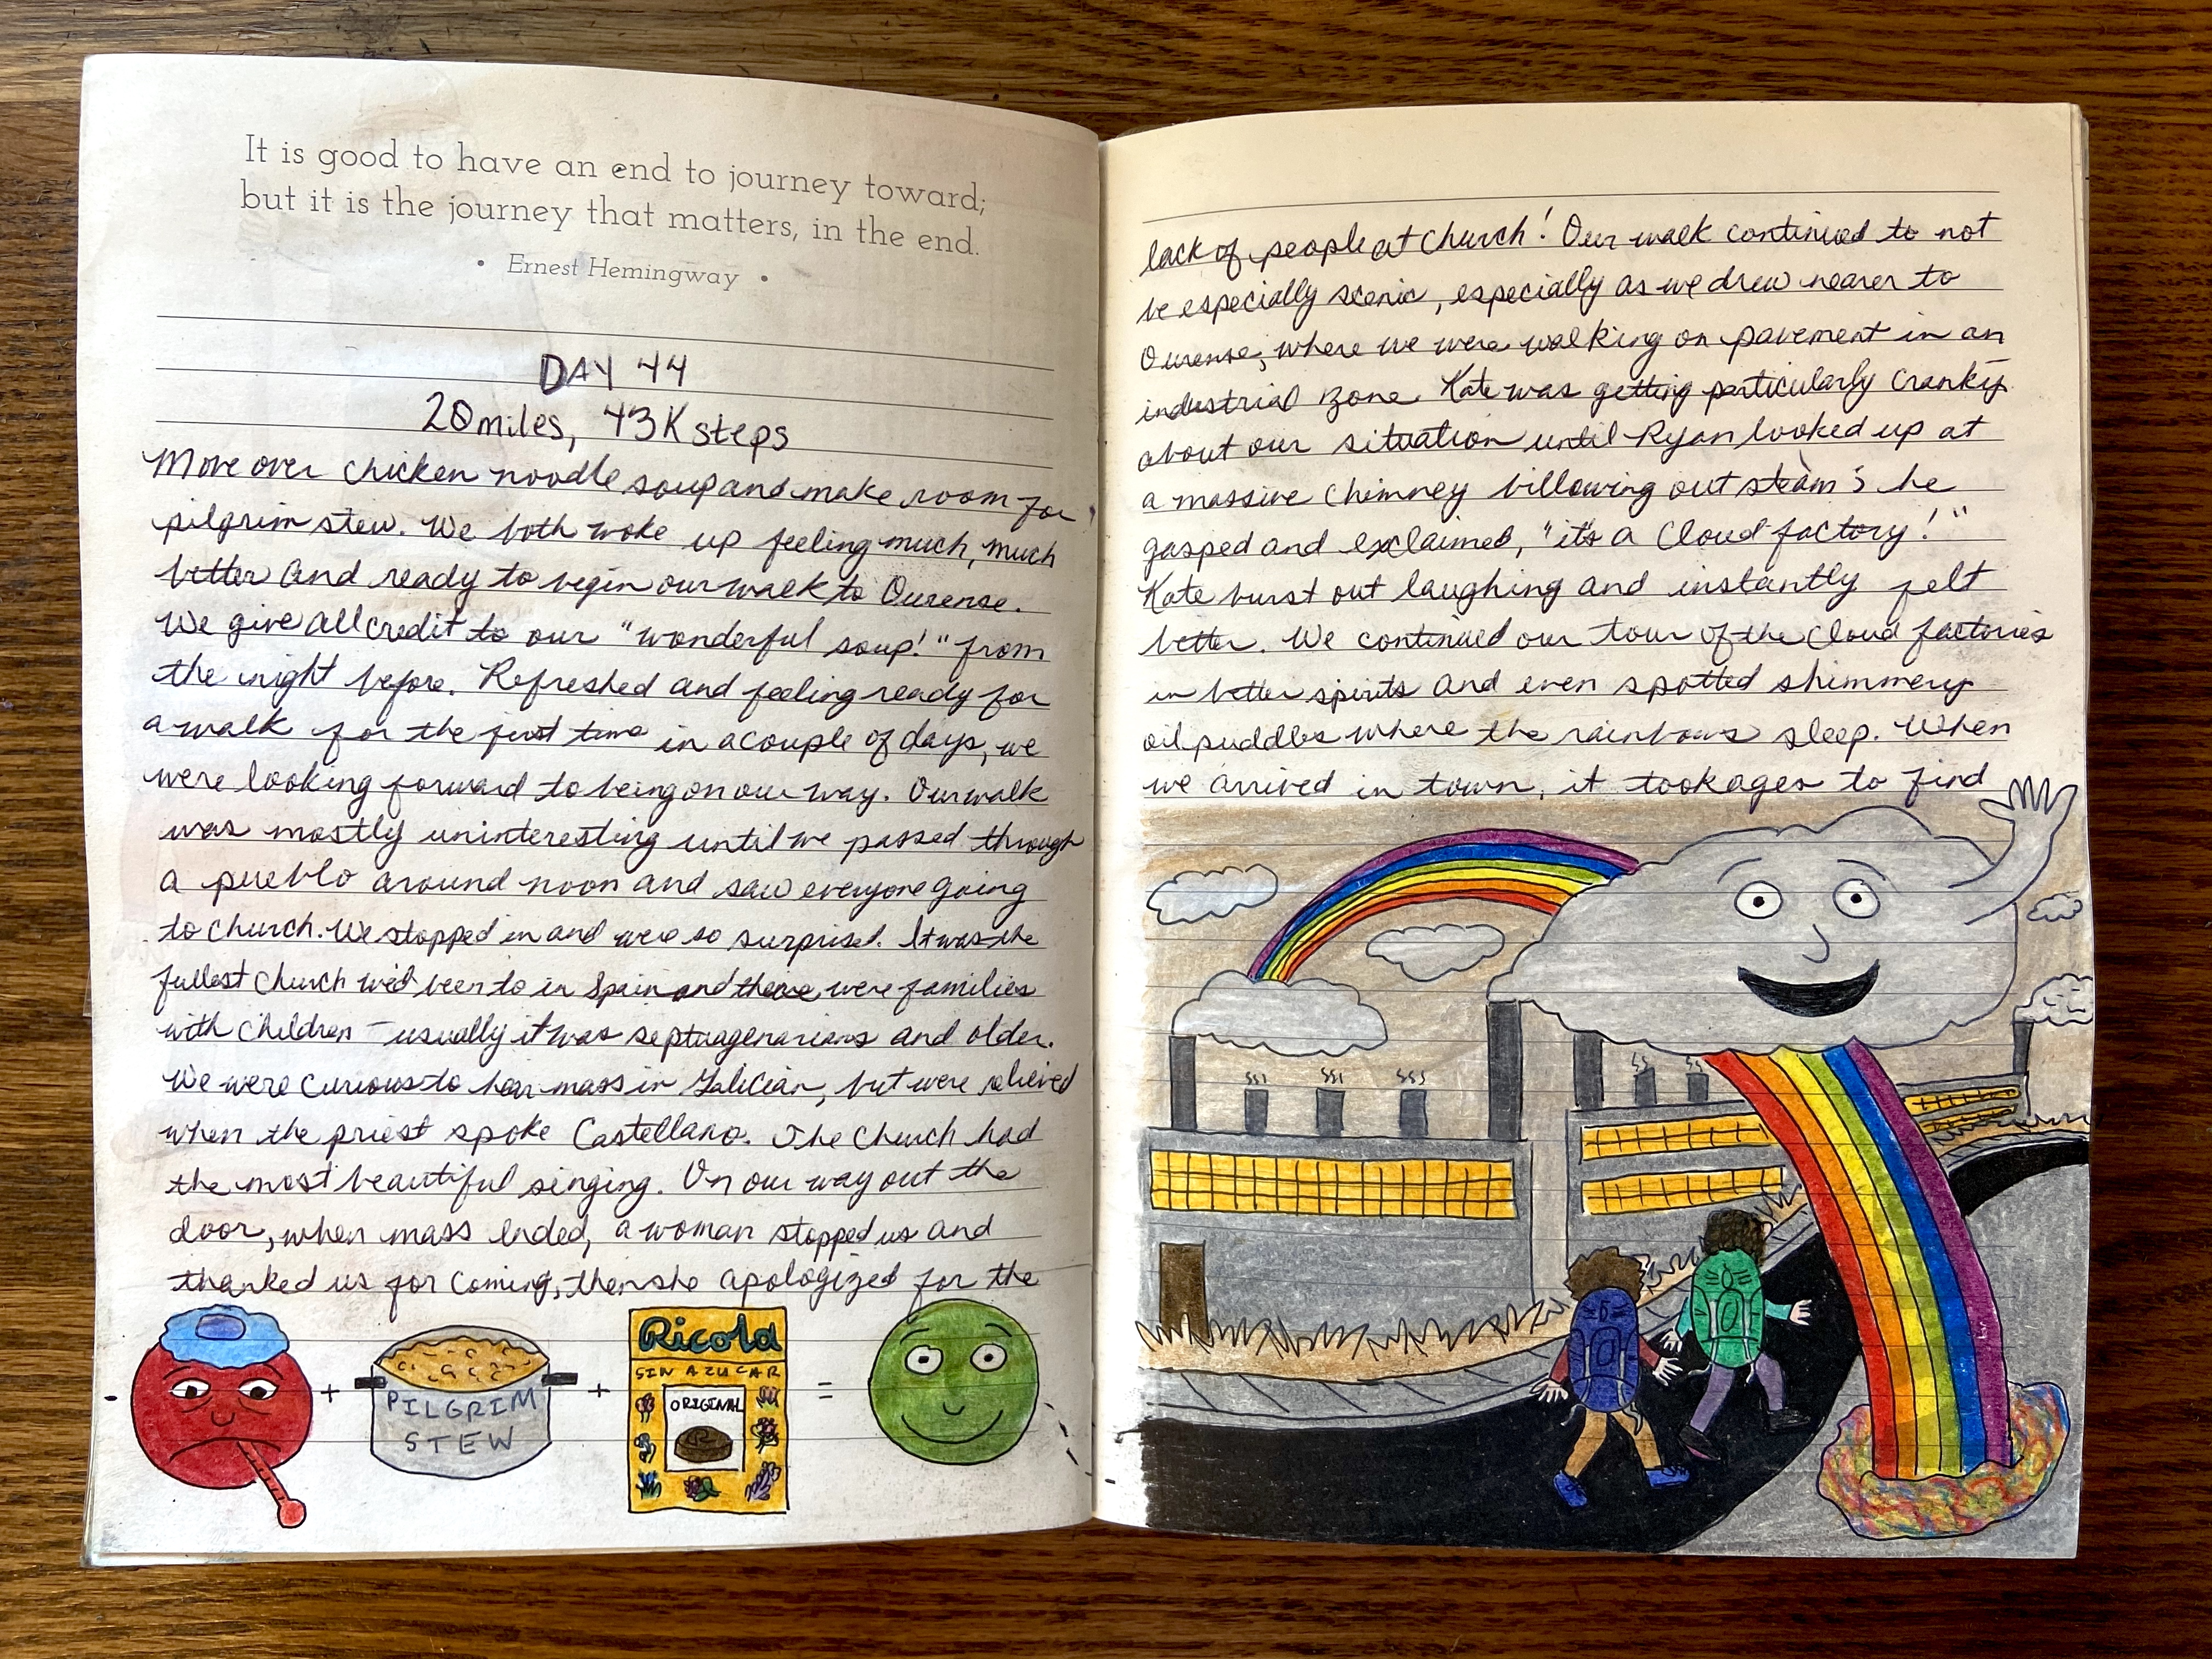 It is good to have an end to journey toward;
but it is the journey that matters, in the end.
• Ernest Hemingway •
DAY 44
20 miles, 43K steps
Move over chicken noodle soup and make room for
pilgrim stew. We both woke up feeling much, much
better and ready to begin our walk to Ourense.
We give all credit to our "wonderful soup!" from
the night before. Refreshed and feeling ready for
a walk for the first time in a couple of days, we
were looking forward to being on our way. Our walk
was mostly uninteresting until we passed through
a pueblo around noon and saw everyone going
to church. We stopped in and were so surprised. It was the
fullest church we'd been to in Spain and there were families
with children - usually it was septuagenarians and older.
We were curious to hear mass in Galician, but were relieved
when the priest spoke Castellano. The church had
the most beautiful singing. On our way out the
door, when mass ended, a woman stopped us and
thanked us for coming, then she apologized for the
+ PILGRIM STEW + Ricola SIN AZUCAR ORIGINAL R =
lack of people at church! Our walk continued to not
be especially scenic, especially as we drew nearer to
Ourense, where we were walking on pavement in an
industrial zone. Kate was getting particularly cranky
about our situation until Ryan looked up at
a massive chimney billowing out steam; he
gasped and exclaimed, "it's a cloud factory!"
Kate burst out laughing and instantly felt
better. We continued our tour of the cloud factories
in better spirits and even spotted shimmery
oil puddles where the rainbows sleep. When
we arrived in town, it took ages to find